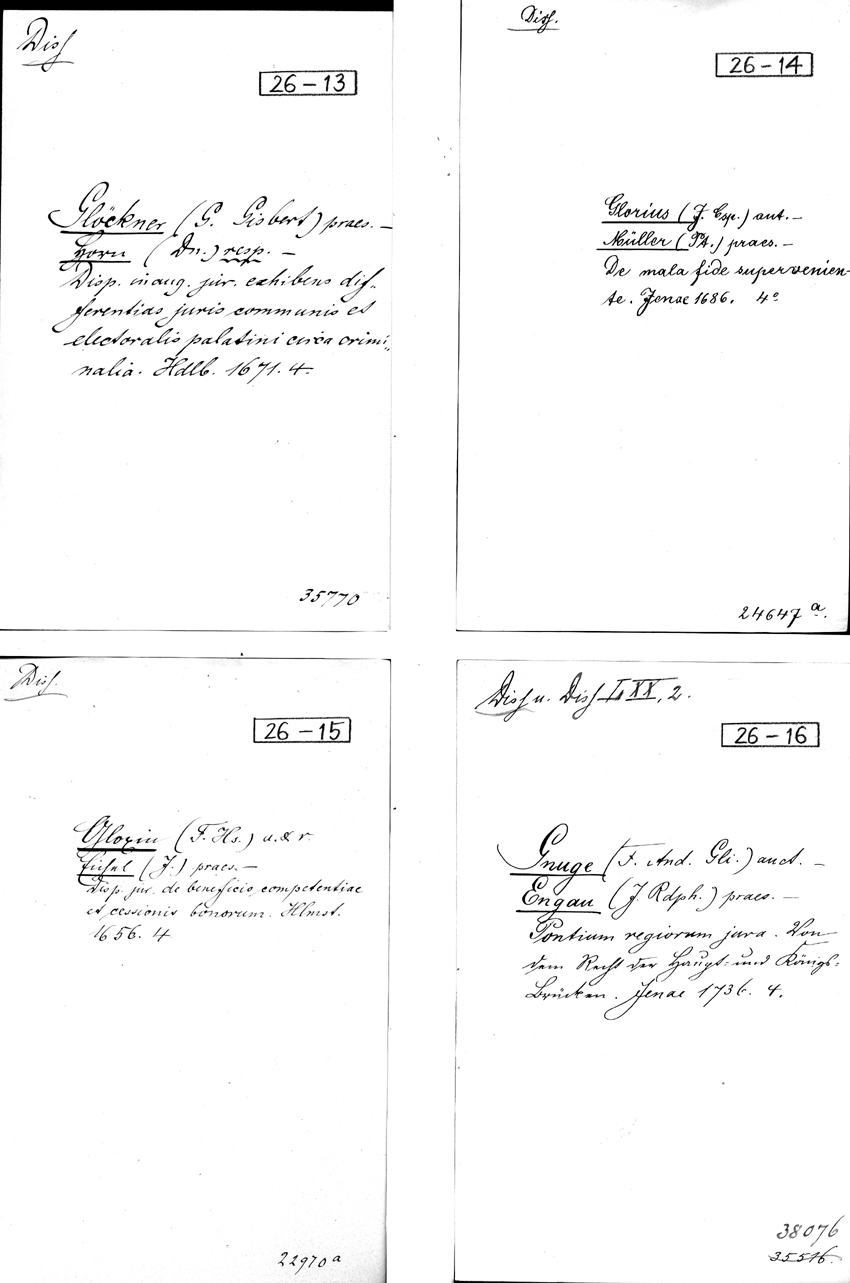 Diss
26-13
Glöckner (G. Gisbert) praes. —
Horn (Dn.) resp. —
Disp. inaug. jur. exhibens dif-
ferentias juris communis et
electoralis palatini circa crimi-
nalia. Hdlb. 1671. 4.
35770
Diss.
26-14
Glorius (J. Csp.) aut. —
Müller (Pt.) praes. —
De mala fide supervenien-
te. Jenae 1686. 4°
24647 a.
Diss.
26-15
Gloxin (F. Hs.) a. & r.
Eichel (J.) praes. —
Disp. jur. de beneficio competentiae
et cessionis bonorum. Hlmst.
1656. 4
22970 a
Diss u. Diss LXX, 2.
26-16
Gnuge (F. And. Gli.) auct. —
Engau (J. Rdph.) praes. —
Pontium regiorum jura. Von
dem Recht der Haupt- und Königs-
Brücken. Jenae 1736. 4.
38076
35516.